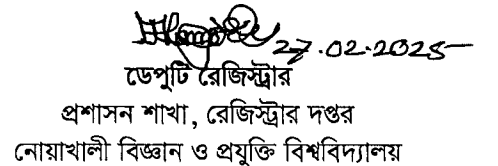 27.02.2025
ডেপুটি রেজিস্ট্রার
প্রশাসন শাখা, রেজিস্ট্রার দপ্তর
নোয়াখালী বিজ্ঞান ও প্রযুক্তি বিশ্ববিদ্যালয়